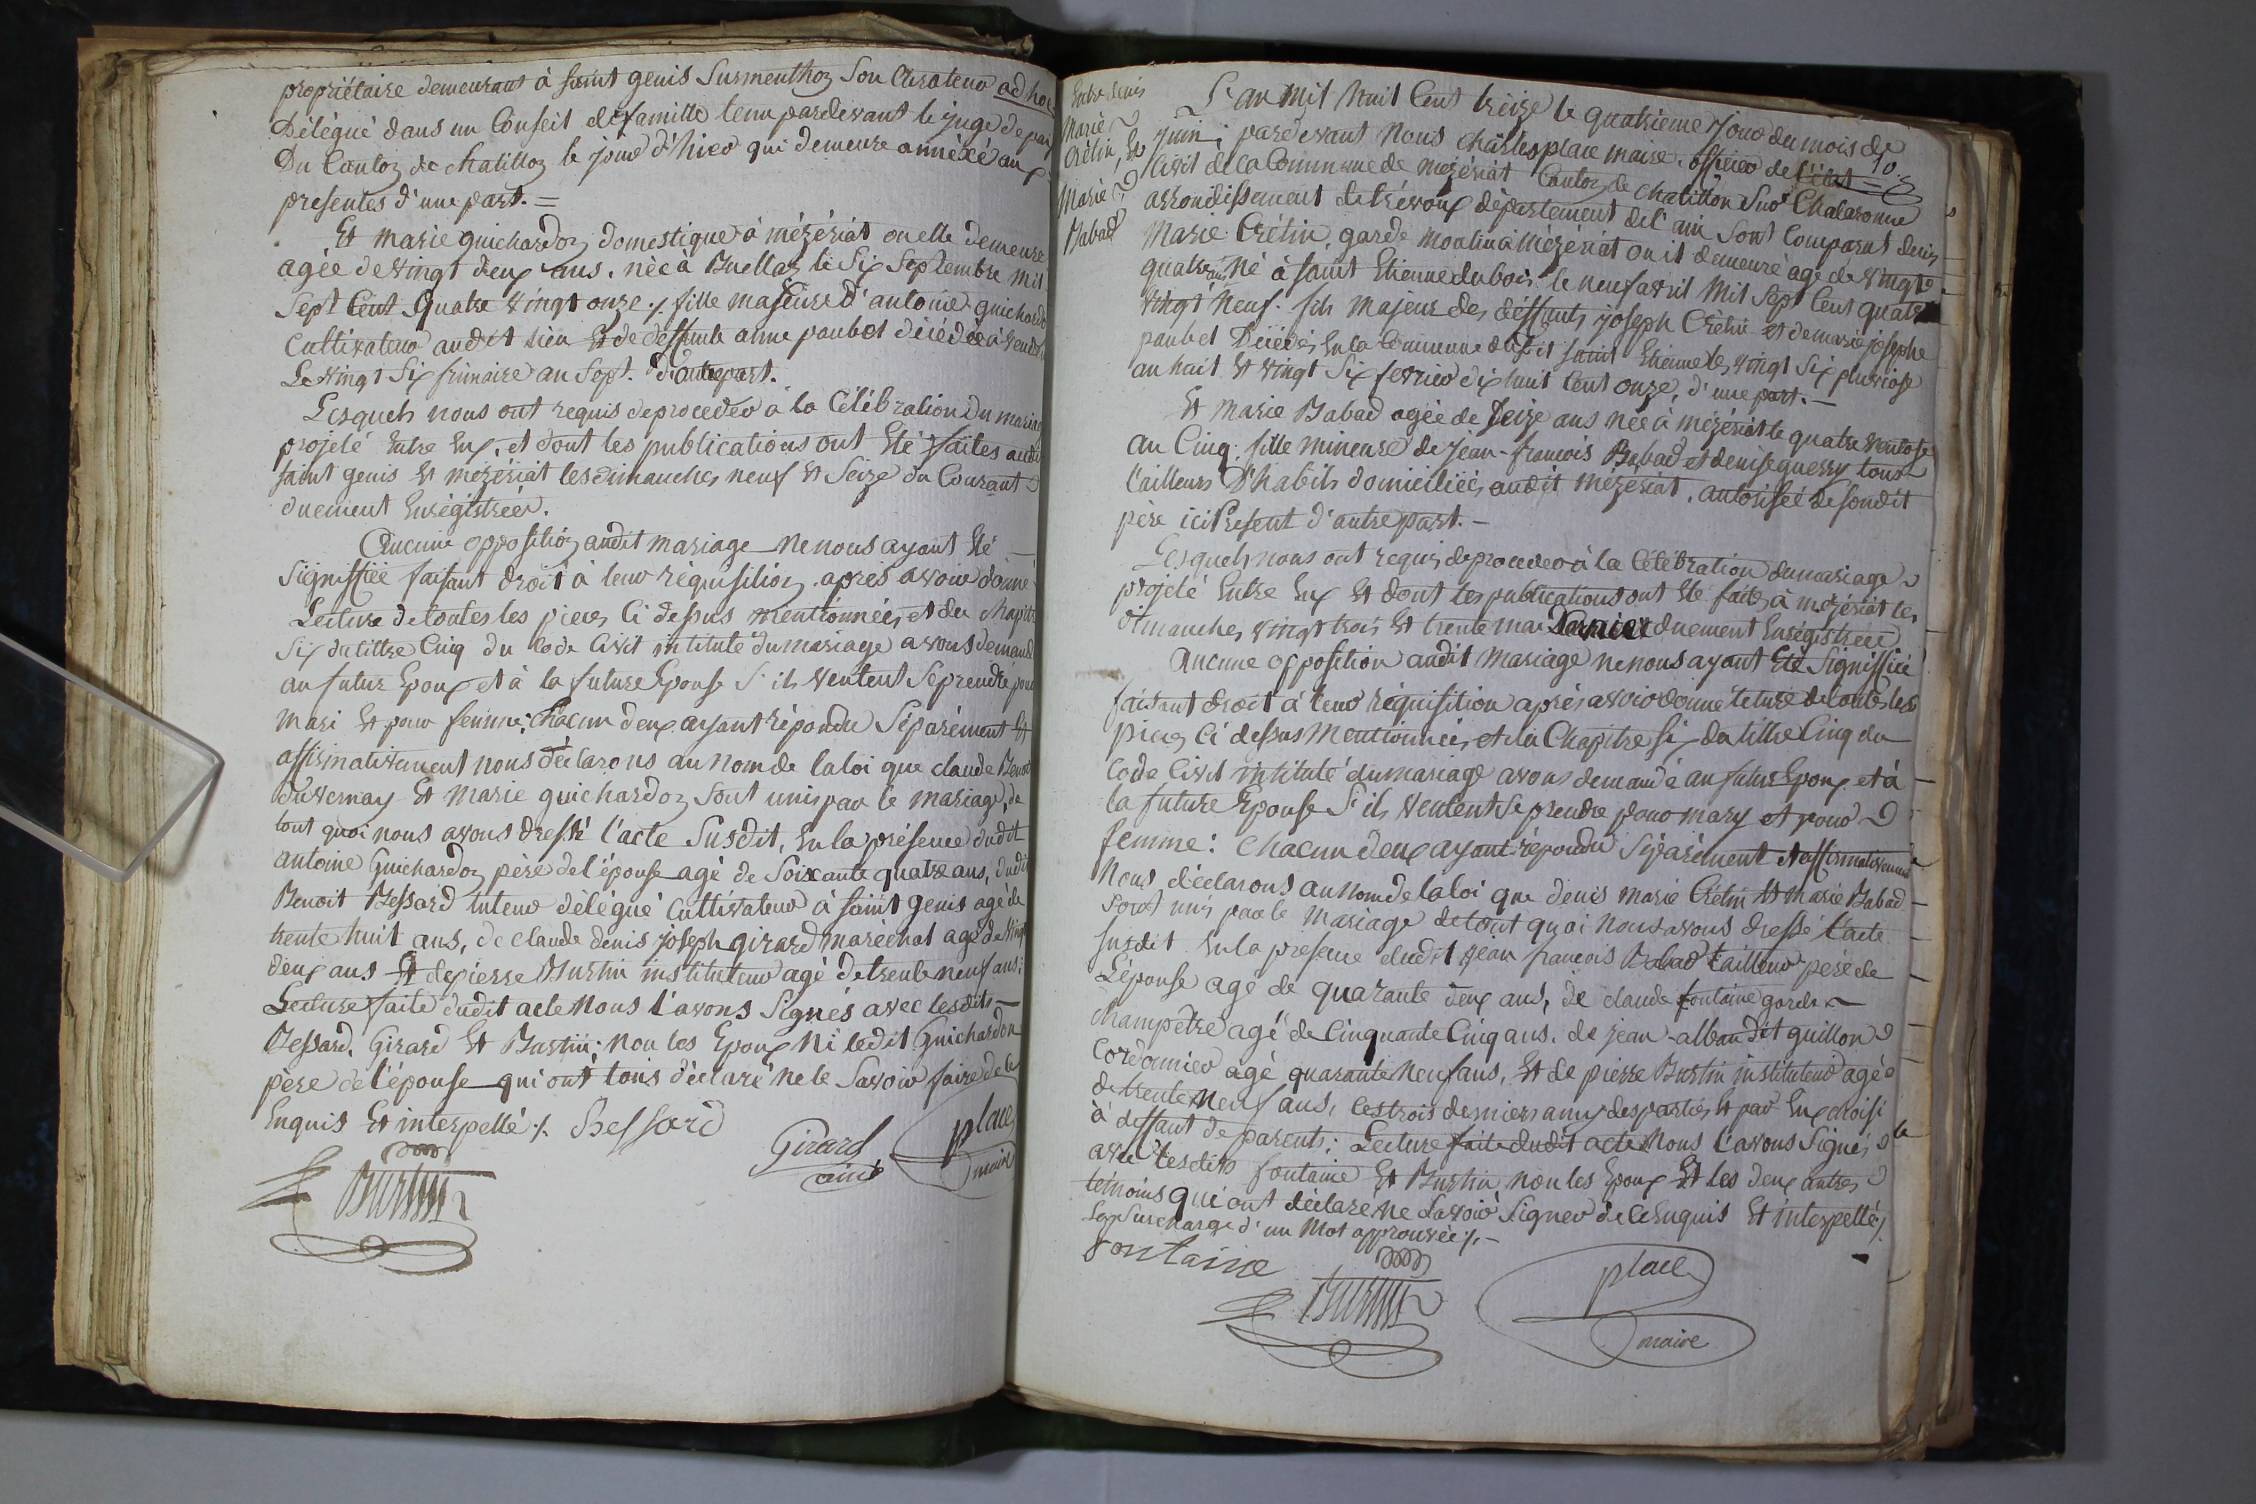 propriétaire demeurant à saint genis Surmenthoz Son Curateur ad hoc
Délégué dans un Conseil de famille tenu pardevant le juge de paix
Du Canton de chatillon le jour d'hier qui demeure annexé aux
presentes d'une part. =
Et marie guichardoz domestique à mézériat ou elle demeure
agée de vingt deux ans. née à Buellas le Six Septembre mil
Sept Cent Quatre vingt onze ./. fille majeure d'antoine guichardo
Cultivateur audit lieu Et de deffunte anne paubel décédée à
Le vingt Six frimaire an Sept. d'autre part.
Lesquels nous ont requis de proceder à la Célébration du mariage
projeté Entre Eux, et dont les publications ont Eté faites audit
saint genis Et mézériat les dimanches neuf Et Seize du Courant
duement Enrégistrées.
Aucune opposition audit mariage ne nous ayant Eté
Signiffiée faisant droit à leur réquisition, après avoir donné
Lecture de toutes les pieces Ci dessus mentionnées, et du Chapitre
Six du tittre Cinq du Code Civil intitulé du mariage avons demandé
au futur Epoux et à la future Epouse S'ils veulent Se prendre pour
mari Et pour femme; Chacun deux ayant répondu Séparément Et
affirmativement nous déclarons au nom de la loi que claude Benoit
duvernay Et marie guichardoz Sont unis par le mariage, de
tout quoi nous avons dressé l'acte Susdit, En la présence dudit
antoine Guichardoz père de l'épouse agé de Soixante quatre ans, dudit
Benoit Bessard tuteur délégué Cultivateur à saint genis agé de
trente huit ans, de claude denis joseph girard maréchal agé de vingt
deux ans Et de pierre Burtin instituteur agé de trente neuf ans;
Lecture faite dudit acte Nous l'avons Signés avec lesdits
Bessard, Girard Et Burtin; non les Epoux Ni ledit Guichardon
père de l'épouse qui ont tous déclaré ne le Savoir faire de ce
Enquis Et interpellé ./. Bessard
Girard
ainé
place
maire
Burtin
Entre denis
Marie
Crétin, Et
Marie
Babad
10.
L'an Mil huit Cent treize le quatrième jour du mois de
juin; pardevant Nous Charles place maire. officier de l'état
Civil de la Commune de mézériat Canton de chatillon Sur Chalaronne
arrondissement de trévoux département de l'ain Sont Comparut denis
Marie Crétin, garde moulin à Mézériat ou il demeure agé de vingt
quatre ans Né à saint Etienne du bois le neuf avril Mil Sept Cent quatre
vingt Neuf. fils majeur des deffunts joseph Crétin et de marie josephe
paubel Décédés En la Commune dudit saint Etienne les vingt Six pluviose
an huit Et vingt Six fevrier dix huit Cent onze, d'une part. —
Et Marie Babad agée de Seize ans née à mézériat le quatre ventose
an Cinq. fille mineure de Jean-francois Babad et denise guerry tous
tailleurs D'habits domiciliés audit Mézériat, autorisée de sondit
père ici Présent d'autre part. —
Lesquels nous ont requis de proceder à la Célébration du mariage
projeté Entre Eux Et dont les publications ont Eté faites à mézériat les
dimanches vingt trois Et trente mai Dernier duement Enrégistrée
Aucune opposition audit Mariage ne nous ayant Eté Signiffiée
faisant droit à leur réquisition après avoir donné leture de toutes les
pieces Ci dessus Mentionnées et du Chapitre Six du tittre Cinq du
Code Civil intitulé du mariage avons demandé au futur Epoux et à
la future Epouse S'ils veulent Se prendre pour mary et pour
femme: Chacun deux ayant répondu Séparément et affirmativement
Nous déclarons au nom de la loi que denis marie Crétin Et Marie Babad
Sont unis par le mariage de tout quoi Nous avons dressé l'acte
susdit En la presence dudit jean francois Babad tailleur père de
L'épouse agé de quarante deux ans, de claude fontaine garde
champêtre agé de Cinquante Cinq ans. de jean alban dit guillon
Cordonnier agé quarante Neuf ans, Et de pierre Burtin instituteur agé
de trente Neuf ans, les trois derniers amis des parties Et par Eux choisi
à deffaut de parents; Lecture faite dudit acte Nous l'avons Signés
avec lesdits fontaine Et Burtin, non les Epoux Et les deux autres
témoins qui ont déclaré Ne Savoir Signer de ce Enquis Et interpellés
La Surcharge d'un Mot approuvée ./. —
fontaine
Burtin
place
maire